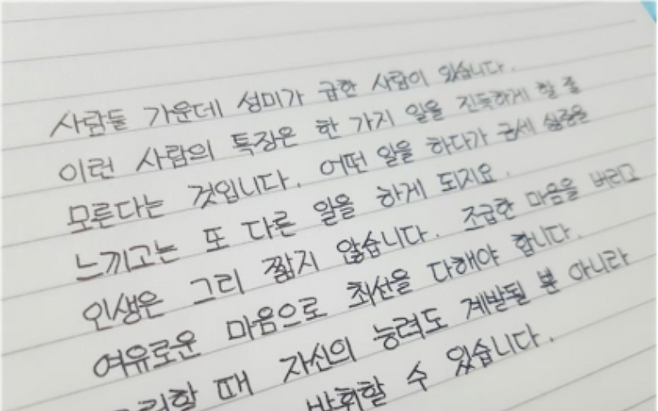 사람들 가운데 성미가 급한 사람이 있습니다.
이런 사람의 특징은 한 가지 일을 진득하게 할 줄
모른다는 것입니다. 어떤 일을 하다가 금세 싫증을
느끼고는 또 다른 일을 하게 되지요.
인생은 그리 짧지 않습니다. 조급한 마음을 버리고
여유로운 마음으로 최선을 다해야 합니다.
때 자신의 능력도 계발될 뿐 아니라
발휘할 수 있습니다.